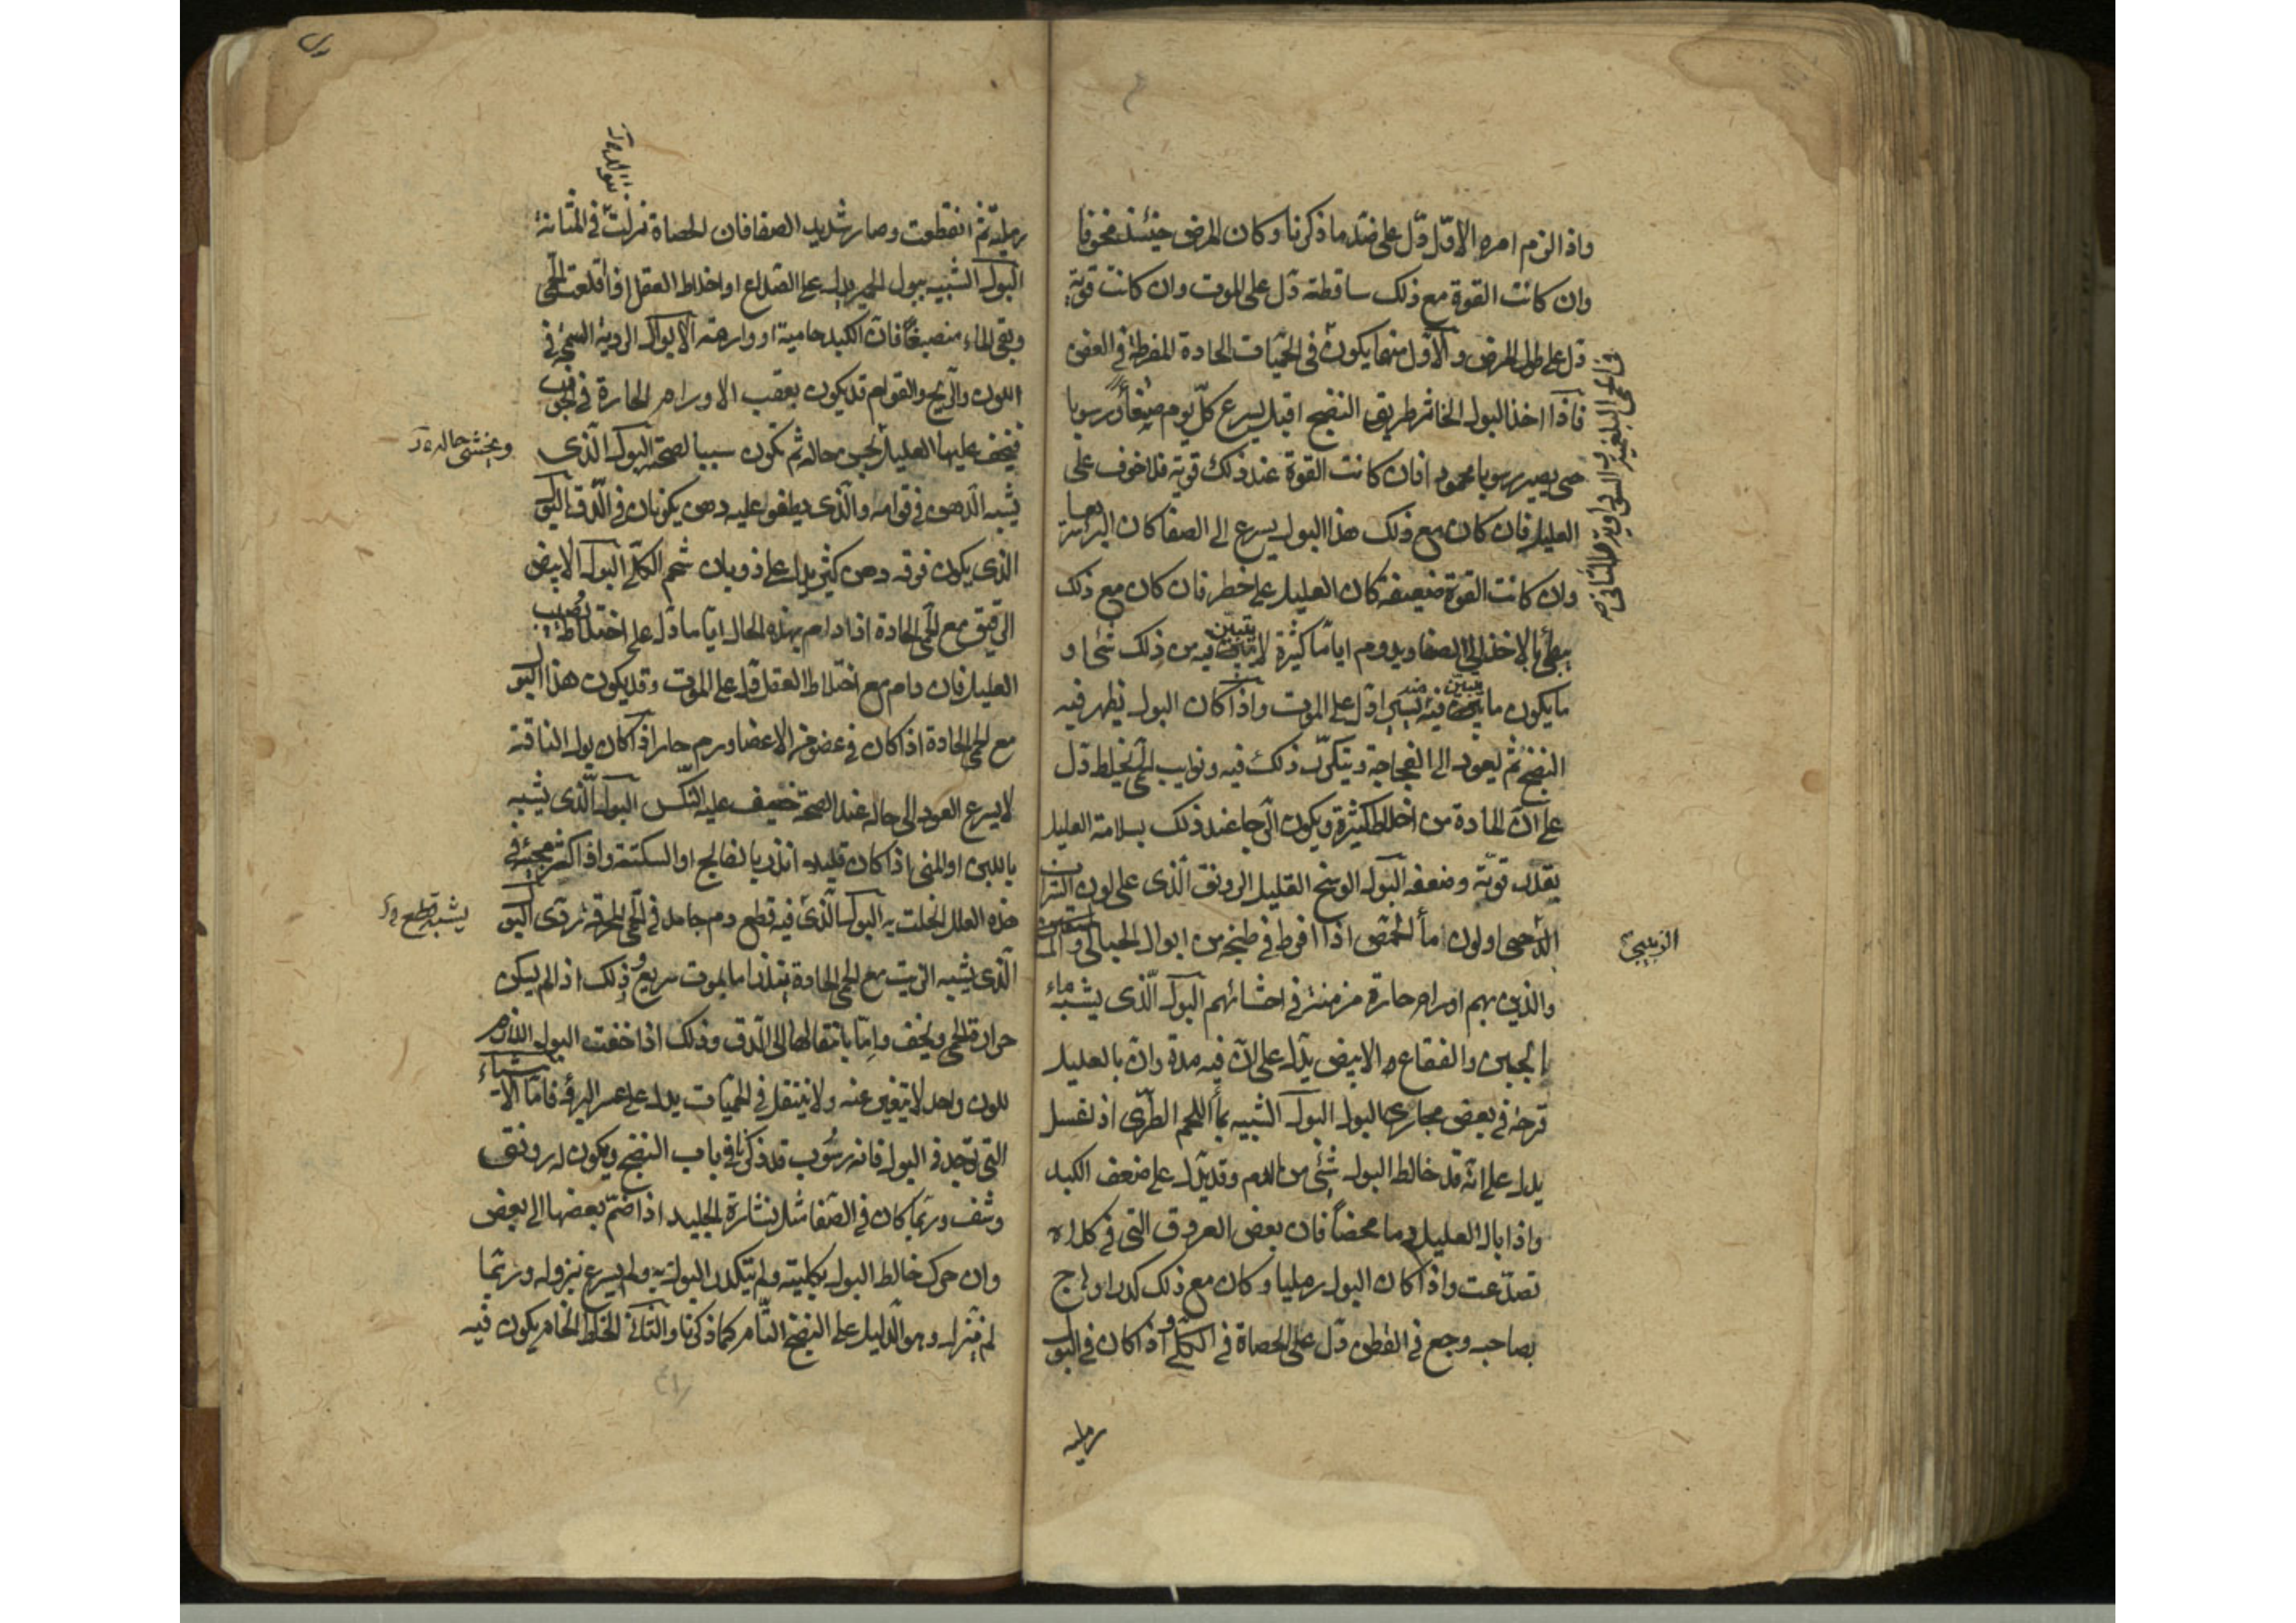 واذا لزم امره الاوّل دّل على ضدّ ما ذكرنا وكان المرض حينئذ مخوفا
وان كانت القوة مع ذلك ساقطة دّل على الموت وان كانت قوية
دّل على طول المرض والاوّل منهما يكون فى الحميات الحادة المفرطة فى العفن
فى الحمى البلغمية السوداوية والثانى
فاذا اخذ البول الخاثر طريق النضج اقبل يسرع كلّ يوم صبغاً ورسوبا
حتى يصير رسوبا محمودا فان كانت القوة عند ذلك قوية فلا خوف على
العليل فان كان مع ذلك هذا البول يسرع الى الصفا كان البرء
وان كانت القوة ضعيفة كان العليل على خطر فان كان مع ذلك
بطيأ بالاخذ الى الصفا ويدوم اياماً كثيرة لا يتبين فيه من ذلك شئ او
ما يكون ما يتبين فيه يسيرا دّل على الموت واذا كان البول يظهر فيه
النضج ثم يعود الى الفجاجة ويتكرّر ذلك فيه ونوايب الحمى تخلط دّل
على انّ المادة من اخلاط كثيرة ويكون الرّجا عند ذلك بسلامة العليل
بقدر قوتّه وضعفه البول الوسخ القليل الرونق الّذى على لون الشراب
الدّهنى او لون مأ الحمّص اذا افرط فى طبخه من ابوال الحبالى و
الزبيبى
والذين بهم اورام حارة مزمنة فى احشائهم البول الّذى يشبه ماء
الجبن والفقاع الابيض يدّل على انّ فيه مدة وانّ بالعليل
قرحة فى بعض مجارى البول البول الشبيه بمأ اللحم الطّرى اذ اغسل
يدل على انه قد خالط البول شئ من الدم وقد يدّل على ضعف الكبد
واذا بال العليل دما محضاً فان بعض العروق التى فى كلاه
تصدّعت واذا كان البول رمليا وكان مع ذلك كدرا وهاج
بصاحبه وجع فى القطن دّل على الحصاة فى الكلّى واذا كان فى البول
رملية
رملية ثم انقطعت وصار شديد الصفا فان الحصاة نزلت فى المثانة
البول الشبيه ببول الحمير يدل على الصّداع او اختلاط العقل اذا اقلعت الحمى
وبقى الماء منصبغاً فانّ الكبد حامية او وارمة الابوال الردية السمجة فى
اللون والرّيح والقوام قد يكون بعقب الاورام الحارة فى الجوف
فيخف عليها العليل حاله ثم تكون سببا لصحته البول الّذى
ويخشى حاله
يشبه الدّهن فى قوامه والّذى يطفوا عليه دهن يكونان فى الّدق البول
الذى يكون فوقه دهن كثير يدل على ذوبان شحم الكلّى البول الابيض
الرقيق مع الحمى الحادة اذا دام بهذه الحال اياما دّل على اختلاط يصيب
العليل فان دام مع اختلاط العقل دّل على الموت وقد يكون هذا البول
مع الحمى الحادة اذا كان فى عضو من الاعضا ورم حار اذا كان بول الناقه
لا يسرع العود الى حاله عند الصحة خيف عليه النكس البول الّذى يشبه
باللبن او المنى اذا كان قليلا انذر بالفالج او السكتة واذا كثر مجيئه فى
هذه العلل انحلت به البول الّذى فيه قطع دم جامد فى الحمى المحرقة ردى البول
يشبه قطع
الّذى يشبه الزيت مع الحمى الحادة ينذر اما بموت سريع وذلك اذا لم يسكن
حرارة الحمى ويخف وامّا بانتقالها الى الّدق وذلك اذا خفت البول اللازم
للون واحد لا يتغير عنه ولا ينتقل فى الحميات يدل على عسر البرؤ فامّا الاشياء
التى توجد فى البول فانه رسوب قد ذكرنا فى باب النضج ويكون له رونق
وشف وربّما كان فى الصّفا مثل نشارة الجليد اذا ضمّ بعضها الى بعض
وان حرك خالط البول بكليته ولم يتكدر البول به ولم يسرع نزوله وربّما
لم ينزل وهو الدليل على النضج التّام كما ذكرنا والثانى الخلط الخام يكون فيه